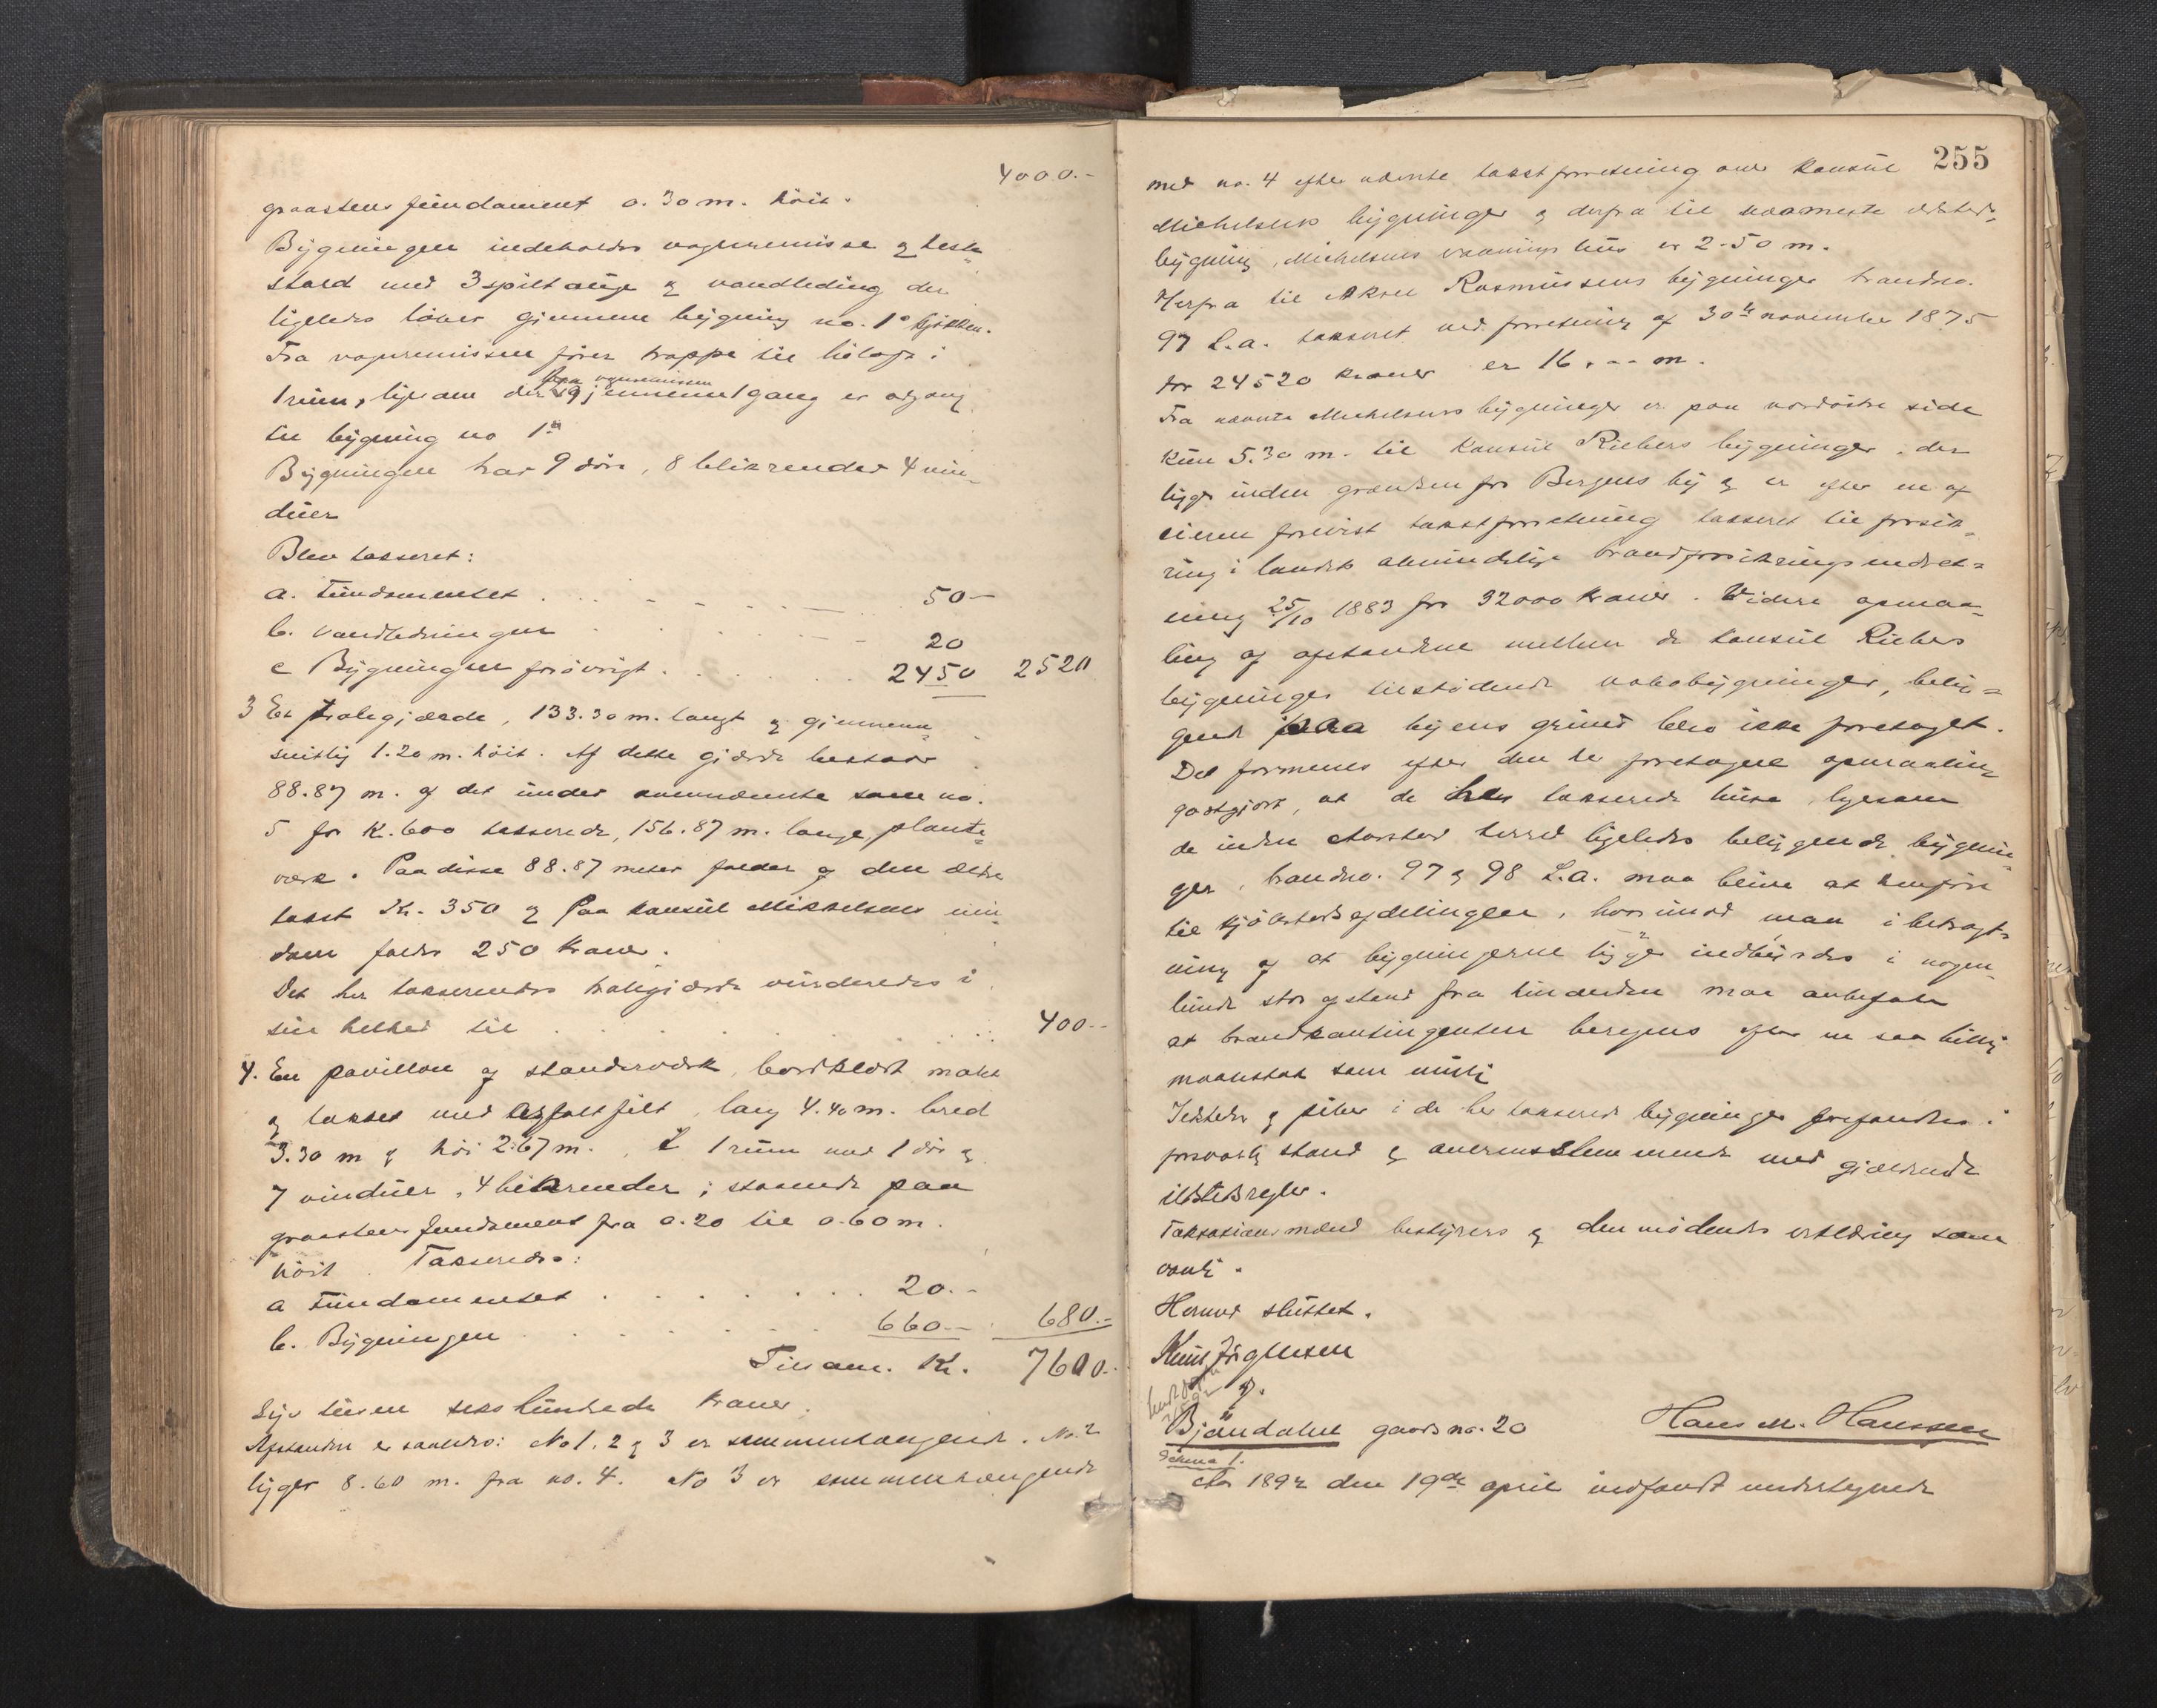 4000.-
graastens fundament 0.30 m. höit.
Bygningen indeholder vognremisse og hest-
stald med 3 spiltauge og vandleding der
ligeledes löber gjennem bygning no. 1s kjökken.
Fra vognremissen förer trappe til hölage i
1 rum, ligesom der fra vognremissen gjennem 1 gang er adgang
til bygning no 1.
Bygningen har 9 döre, 8 blikrender 4 vin-
duer
Blev takseret:
a. Fundamentet . . . 50 -
b. Vandledningen . . . 20
c Bygningen forövrigt . . . 2450 2520
3 Et tralegjærde, 133.30 m. langt og gjennem-
snitlig 1.20 m. höit. Af dette gjærde bestaar
88.87 m. af det under ovennævnte no.
5 for K. 600 takserede, 156.87 m. lange, plante-
værk. Paa disse 88.87 meter falder af den ældre
takst Kr. 350 og paa konsul Mikkelsens ein-
dom falder 250 kroner.
Det her takserendes tralegjærde vurderedes i
sin helhed til . . . 400.-
4. En pavillon af standerværk, bordklædt malet
og takket med asfaltfilt, lang 4.40 m. bred
3.30 m og höi 2.67 m., 1 rum med 1 dör og
7 vinduer, 4 blikrender; staaende paa
graastens fundament fra 0.20 til 0.60 m.
höit. Takseredes:
a Fundamentet . . . 20.-
b. Bygningen . . . 660.- 680.-
Tilsam. Kr. 7600.-
Syv tusen sekshundrede kroner.
Afstanden er saaledes: No 1, 2 og 3 er sammenhængende. No. 2
ligger 8.60 m. fra no. 4. No 3 er sammenhængende
255
med no. 4 efter nævnte takstforretning over konsul
Michelsens bygninger og derfra til nærmeste
bygning, Michelsens vaanings hus er 2.50 m.
Herfra til Aksel Rasmussens bygninger brandno.
97 L.a. takseret ved forretning af 30te november 1875
for 24520 kroner er 16.00 m.
Fra nævnte Michelsens bygninger er paa nordöstre side
kun 5.30 m. til konsul Riebers bygninger, der
ligger inden grændsen for Bergens by og er efter en af
eieren forevist takstforretning takseret til forsik-
ring i landets almindelige brandforsikringsindret-
ning 25/10 1883 for 32000 kroner. Videre opmaa-
ling af afstandene mellem de konsul Riebers
bygninger tilstödende nabobygninger, belig-
gende paa byens grund blev ikke foretaget.
Det formenes efter den her foretagne opmaaling
godtgjort, at de her takserede huse, ligesom
de inden Aarstad herred ligeledes beliggende bygnin-
ger, brandno. 97 og 98 L.a. maa blive at henföre
til kjöbstadsafdelingen, hvorimod man i betragt-
ning af at bygningerne ligger indbyrdes i nogen-
lunde stor afstand fra hinanden maa anbefale
at brandkontingenten beregnes efter en saa billig
maalestok som mulig
Ildsteder og piber i de her takserede bygninger forefandtes i
forsvarlig stand og overensstemmende med gjældende
ildstedsregler.
Taksationsmænd bestyrers og den mödendes erklæring som
vanlig.
Hermed sluttet.
Knud Jörgensen
Hans M. Hanssen
Björndalen gaards no. 20
Schema 1.
Ao 1892 den 19de april indfandt undertegnede